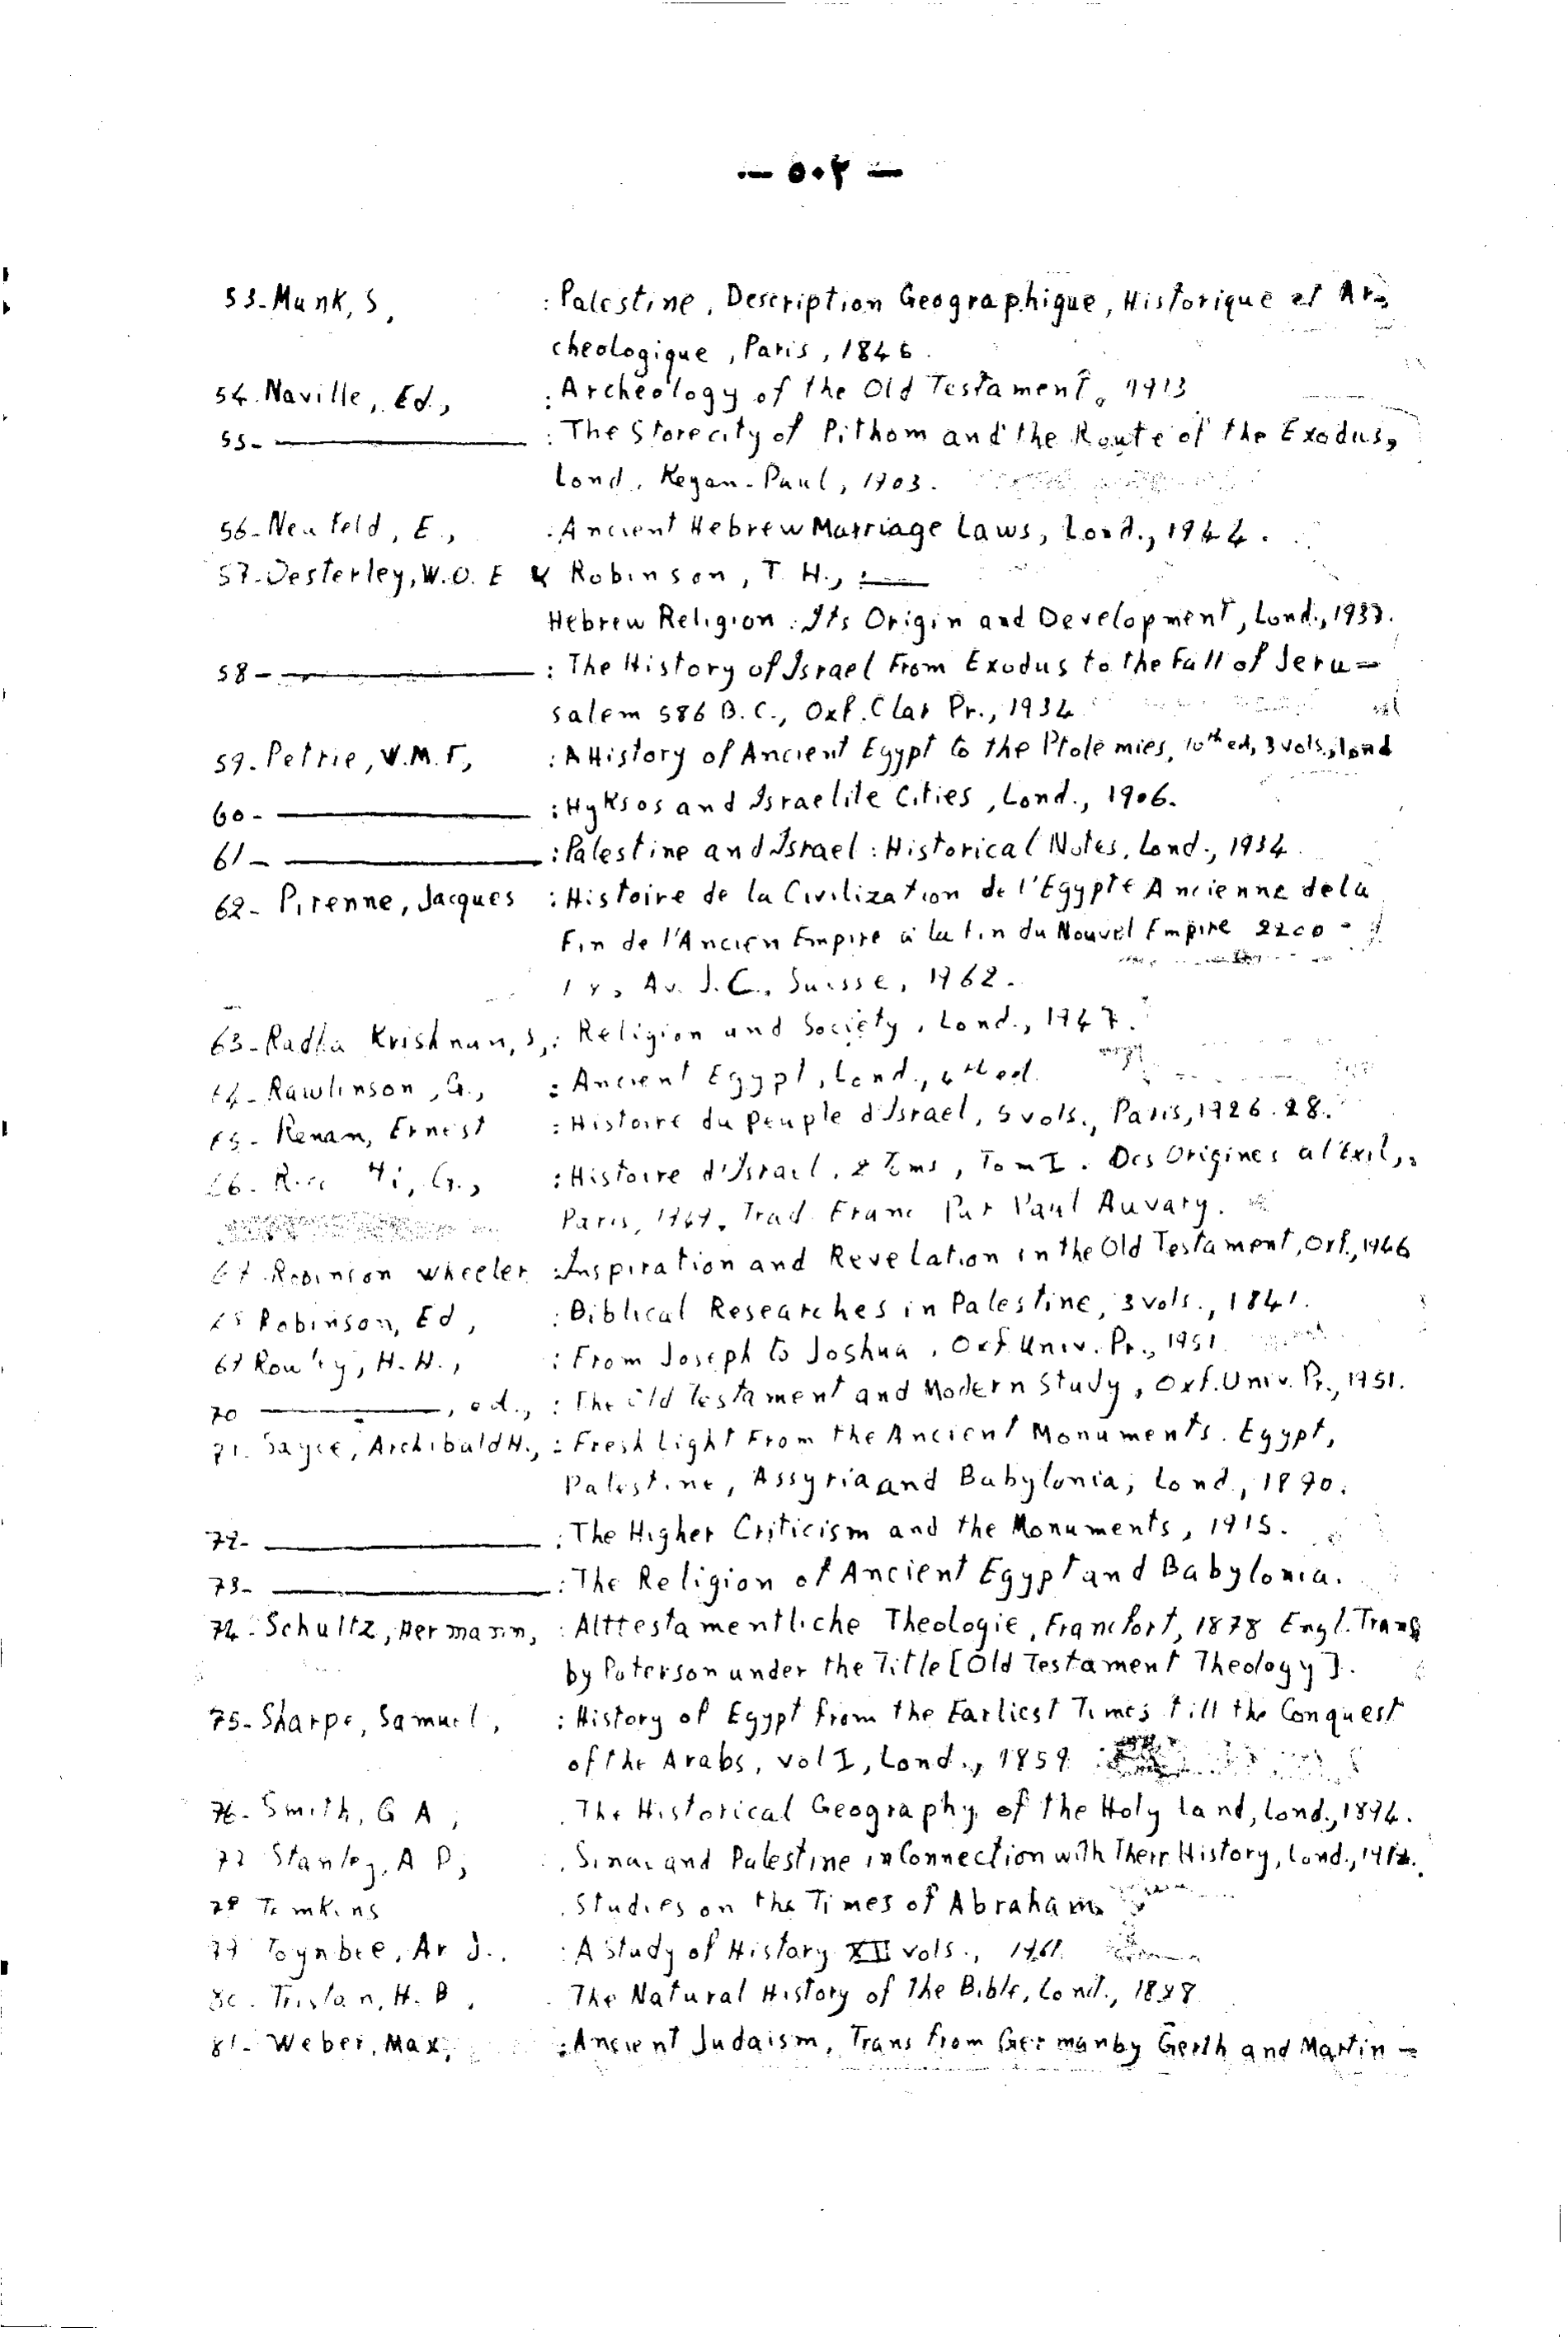 — ٥٠٢ —
53- Munk, S, : Palestine, Description Geographique, Historique et Ar-
cheologique, Paris, 1846.
54. Naville, Ed., : Archeology of the Old Testament, 1913
55- ——— : The Storecity of Pithom and the Route of the Exodus,
Lond, Kegan-Paul, 1903.
56- Neufeld, E., : Ancient Hebrew Marriage Laws, Lond., 1944.
57- Oesterley, W.O.E & Robinson, T. H., : ——
Hebrew Religion: Its Origin and Development, Lond., 1937.
58- ——— : The History of Israel From Exodus to the Fall of Jeru-
salem 586 B.C., Oxf. Clar Pr., 1934
59- Petrie, W.M.F, : A History of Ancient Egypt to the Ptolemies, 10th ed, 3 vols., lond
60- ——— : Hyksos and Israelite Cities, Lond., 1906.
61- ——— : Palestine and Israel: Historical Notes, Lond., 1934.
62- Pirenne, Jacques : Histoire de la Civilization de l'Egypte Ancienne de la
Fin de l'Ancien Empire à la fin du Nouvel Empire 2200 -
Av. J.C., Suisse, 1962.
63- Radha Krishnan, S,: Religion and Society, Lond., 1947.
64- Rawlinson, G., : Ancient Egypt, Lond., 4th ed.
65- Renan, Ernest : Histoire du peuple d'Israel, 5 vols., Paris, 1926.28.
66. G., : Histoire d'Israel, 2 Toms, Tom I. Des Origines a l'Exil,
Paris, 1969, Trad. Franc Par Paul Auvary.
67 Robinson Wheeler : Inspiration and Revelation in the Old Testament, Oxf., 1946
68 Robinson, Ed, : Biblical Researches in Palestine, 3 vols., 1841.
69 Rowley, H.H., : From Joseph to Joshua, Oxf. Univ. Pr., 1951
70 ———, ed., : The Old Testament and Modern Study, Oxf. Univ. Pr., 1951.
71. Sayce, Archibald H., : Fresh Light From the Ancient Monuments. Egypt,
Palestine, Assyria and Babylonia, Lond, 1890.
72- ——— : The Higher Criticism and the Monuments, 1915.
73- ——— : The Religion of Ancient Egypt and Babylonia.
74- Schultz, Hermann, : Alttestamentliche Theologie, Francfort, 1878 Engl. Trans
by Paterson under the Title [Old Testament Theology].
75- Sharpe, Samuel, : History of Egypt from the Earliest Times till the Conquest
of the Arabs, vol I, Lond., 1859
76- Smith, G A, The Historical Geography of the Holy land, Lond., 1894.
77 Stanley, A P, Sinai and Palestine in Connection with Their History, Lond., 1912.
78 Tomkins Studies on the Times of Abraham
79 Toynbee, Ar J., : A Study of History XII vols., 1961.
80. Tristan, H. B, The Natural History of the Bible, Lond.,
81- Weber, Max, : Ancient Judaism, Trans from German by Gerth and Martin -